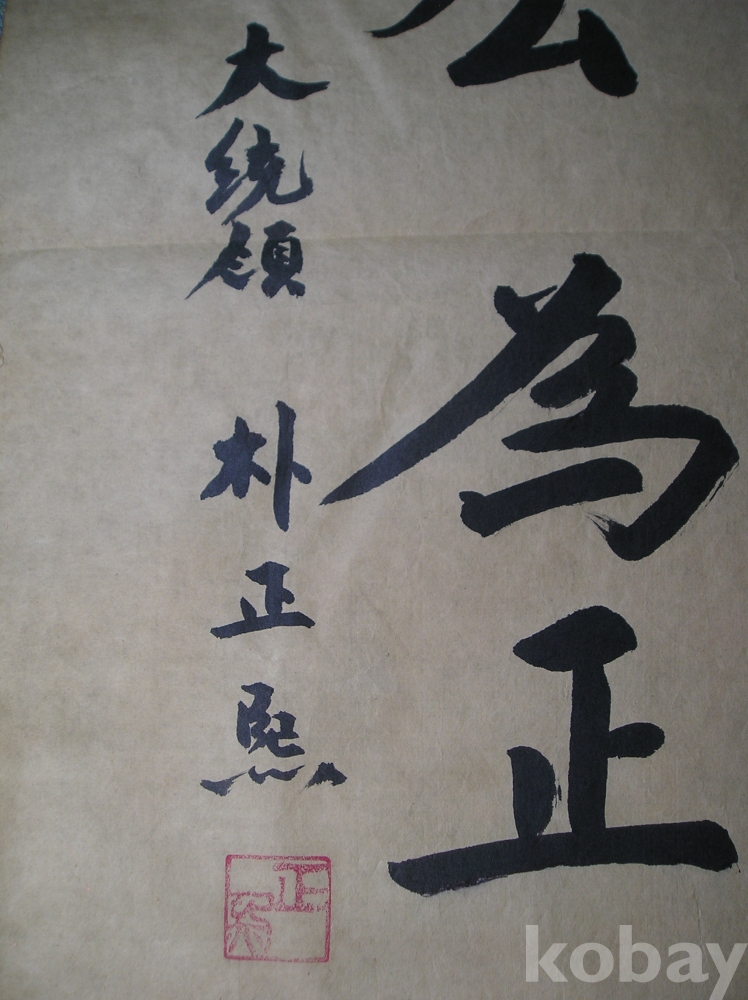 公為正
大統領 朴正熙
正
kobay